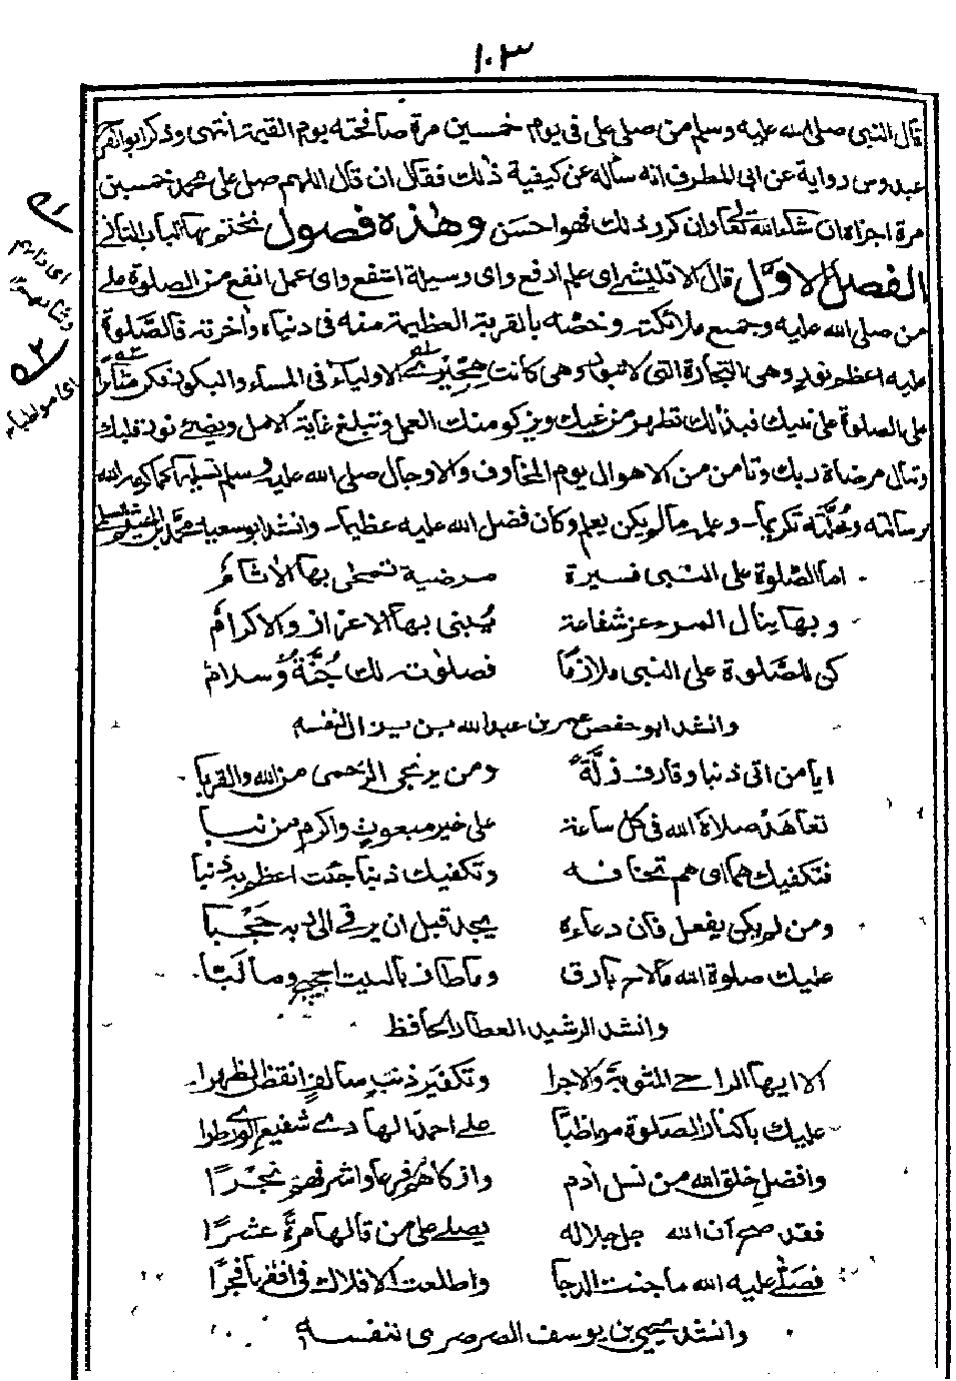 ١٠٣
قال النبى صلى الله عليه وسلم من صلى على فى يوم خمسين مرة صافحته يوم القيمة انتهى وذكر ابو الفرج
عبدوس رواية عن ابى المطرف انه سأله عن كيفية ذلك فقال ان قال اللهم صل على محمد خمسين
مرة اجزاه ان شاء الله تعالى وان كرر ذلك فهو احسن وهذه فصول نختم بها الباب الثانى
الفصل الاول قال الاقليشى اى علم ارفع واى وسيلة اشفع واى عمل انفع من الصلوة على
من صلى الله عليه وجميع ملائكته وخصه بالقربة العظيمة منه فى دنياه وآخرته فالصلوة
عليه اعظم نور وهى التجارة التى لا تبور وهى كانت هجيرى الاولياء فى المساء والبكور فكن مثابرا
على الصلوة على نبيك فبذلك تطهر من غيك ويزكو منك العمل وتبلغ غاية الامل ويضئ نور قلبك
وتنال مرضاة ربك وتامن من الاهوال يوم المخاوف والاوجال صلى الله عليه وسلم تسليما كما كرمه الله
برسالته وخلته تكريما وعلمه ما لم يكن يعلم وكان فضل الله عليه عظيما وانشد ابو سعيد محمد بن
اما الصلوة على النبى فسيرة مرضية تمحى بها الآثام
وبها ينال المرء عز شفاعة يبنى بها الاعزاز والاكرام
كن للصلوة على النبى ملازما فصلوته لك جنة وسلام
وانشد ابو حفص عمر بن عبد الله بن لنفسه
ايا من اتى ذنبا وقارف زلة ومن يرتجى الرحمى من الله والقربا
تعاهد صلاة الله فى كل ساعة على خير مبعوث واكرم من نبا
فتكفيك هما اى هم تخافه وتكفيك ذنبا جئت اعظم به ذنبا
ومن لم يكن يفعل فان دعاءه يجد قبل ان يرقى الى ربه حجبا
عليك صلوة الله ما لاح بارق وما طاف بالبيت الحجيج وما لبا
وانشد الرشيد العطار الحافظ
الا ايها الراجى المثوبة والاجرا وتكفير ذنب سالف انقض الظهرا
عليك باكثار الصلوة مواظبا على احمد الهادى شفيع الورى طرا
وافضل خلق الله من نسل آدم وازكاهم فرعا واشرفهم نجرا
فقد صح ان الله جل جلاله يصلى على من قالها مرة عشرا
فصلى عليه الله ما جنت الدجا واطلعت الافلاك فى افقها فجرا
وانشد يحيى بن يوسف الصرصرى لنفسه